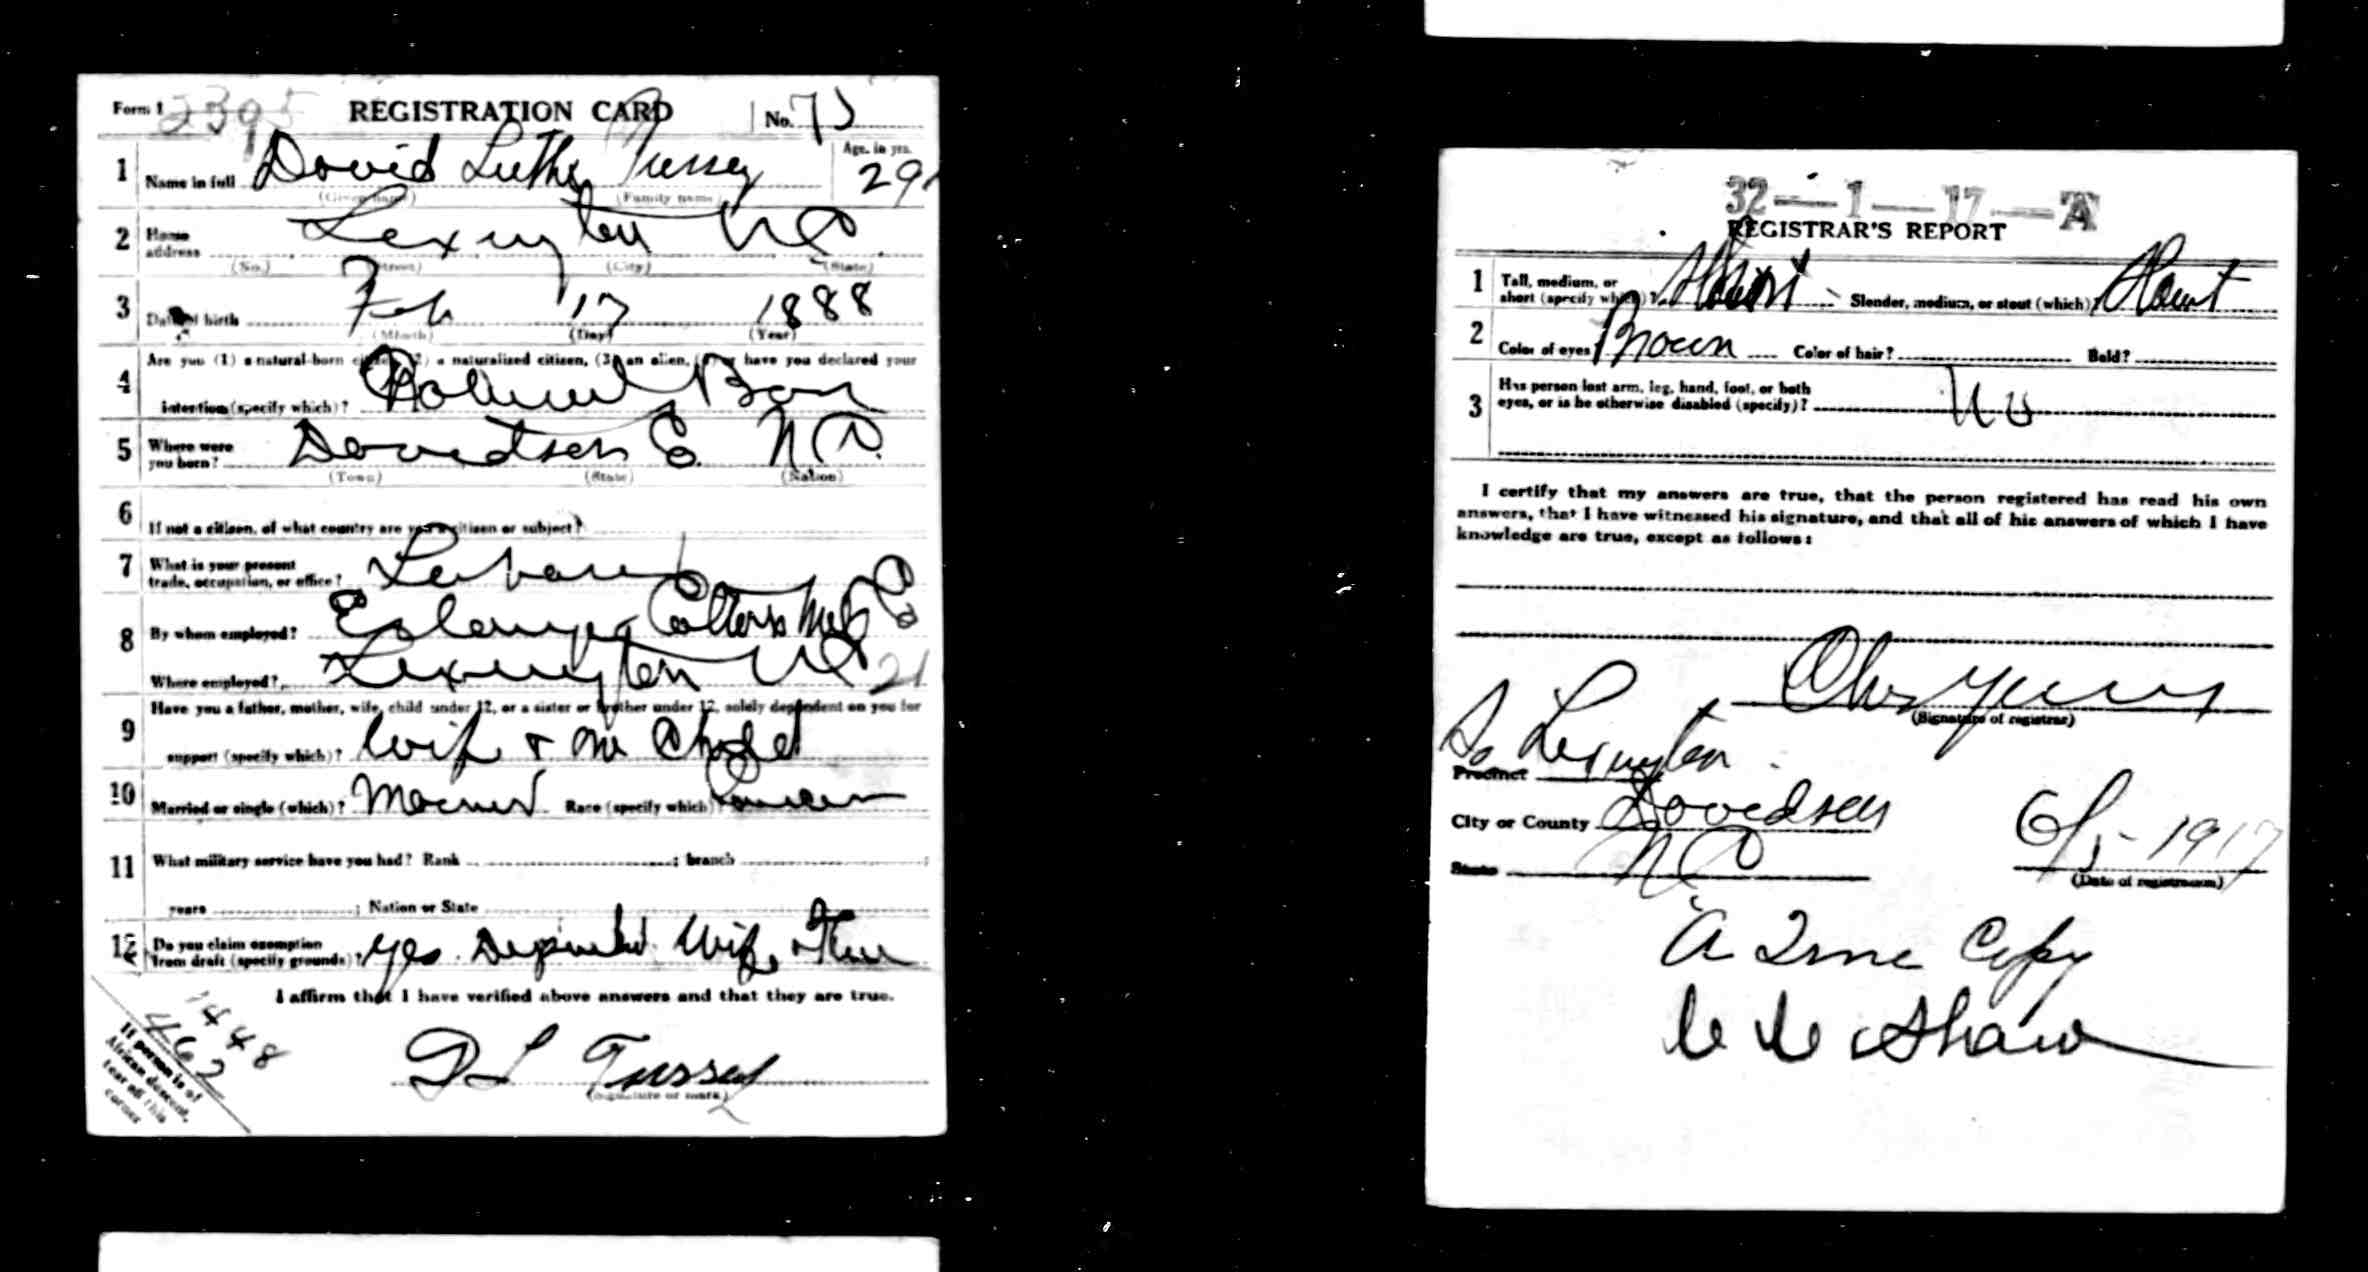 Form 1 2395 REGISTRATION CARD No. 75
1 Name in full David Luther Tussey Age, in yrs. 29
(Given name) (Family name)
2 Home address Lexington NC
(No.) (Street) (City) (State)
3 Date of birth Feb 17 1888
(Month) (Day) (Year)
4 Are you (1) a natural-born citizen, (2) a naturalized citizen, (3) an alien, (4) or have you declared your
intention (specify which)? Natural Born
5 Where were you born? Davidson Co. NC
(Town) (State) (Nation)
6 If not a citizen, of what country are you a citizen or subject?
7 What is your present trade, occupation, or office?
8 By whom employed? Erlanger Cotton Mills Co
Where employed? Lexington NC 21
9 Have you a father, mother, wife, child under 12, or a sister or brother under 12, solely dependent on you for
support (specify which)? Wife + one Child
10 Married or single (which)? Married Race (specify which)? Caucasian
11 What military service have you had? Rank ; branch ;
years ; Nation or State
12 Do you claim exemption from draft (specify grounds)? Yes. Dependent Wife +
I affirm that I have verified above answers and that they are true.
1448
462
D L Tussey
(Signature or mark)
If person is of
African descent,
tear off this
corner
32—1—17—A
REGISTRAR'S REPORT
1 Tall, medium, or short (specify which)? Short Slender, medium, or stout (which)? Stout
2 Color of eyes? Brown Color of hair? Bald?
3 Has person lost arm, leg, hand, foot, or both
eyes, or is he otherwise disabled (specify)? No
I certify that my answers are true, that the person registered has read his own
answers, that I have witnessed his signature, and that all of his answers of which I have
knowledge are true, except as follows:
(Signature of registrar)
Precinct So Lexington
City or County Davidson
State NC 6/5-1917
(Date of registration)
A True Copy
Shaw